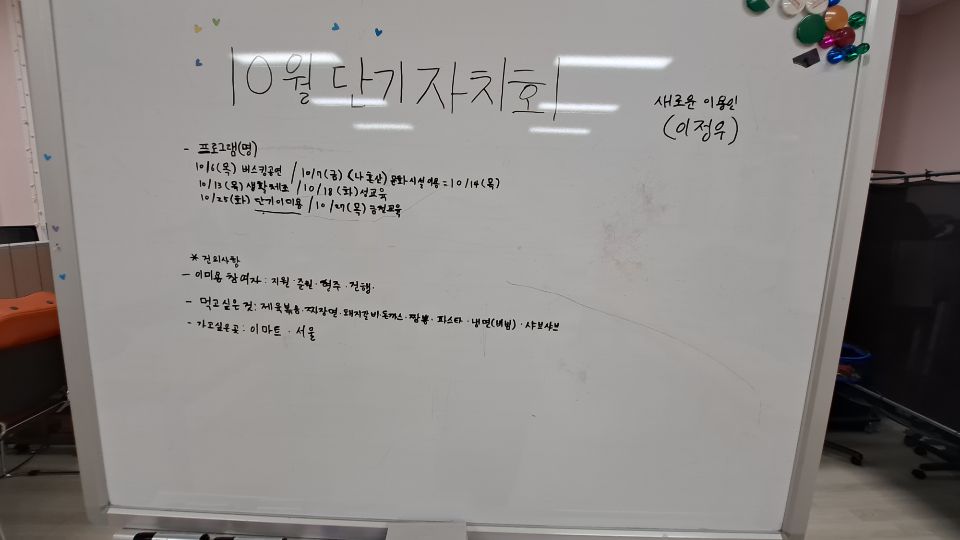 10월 단기자치회
새로운 이용인
(이정우)
- 프로그램(명)
10/6(목) 버스킹공연 / 10/7(금) (나혼산) 문화시설이용 = 10/14(목)
10/13(목) 생활체조 / 10/18(화) 성교육
10/25(화) 단기이미용 / 10/27(목) 금전교육
* 건의사항
- 이미용 참여자 : 지원 · 준원 · 형주 · 진행 ·
- 먹고싶은 것 : 제육볶음 · 짜장면 · 돼지갈비 · 돈까스 · 짬뽕 · 파스타 · 냉면(비빔) · 샤브샤브
- 가고싶은곳 : 이마트 · 서울